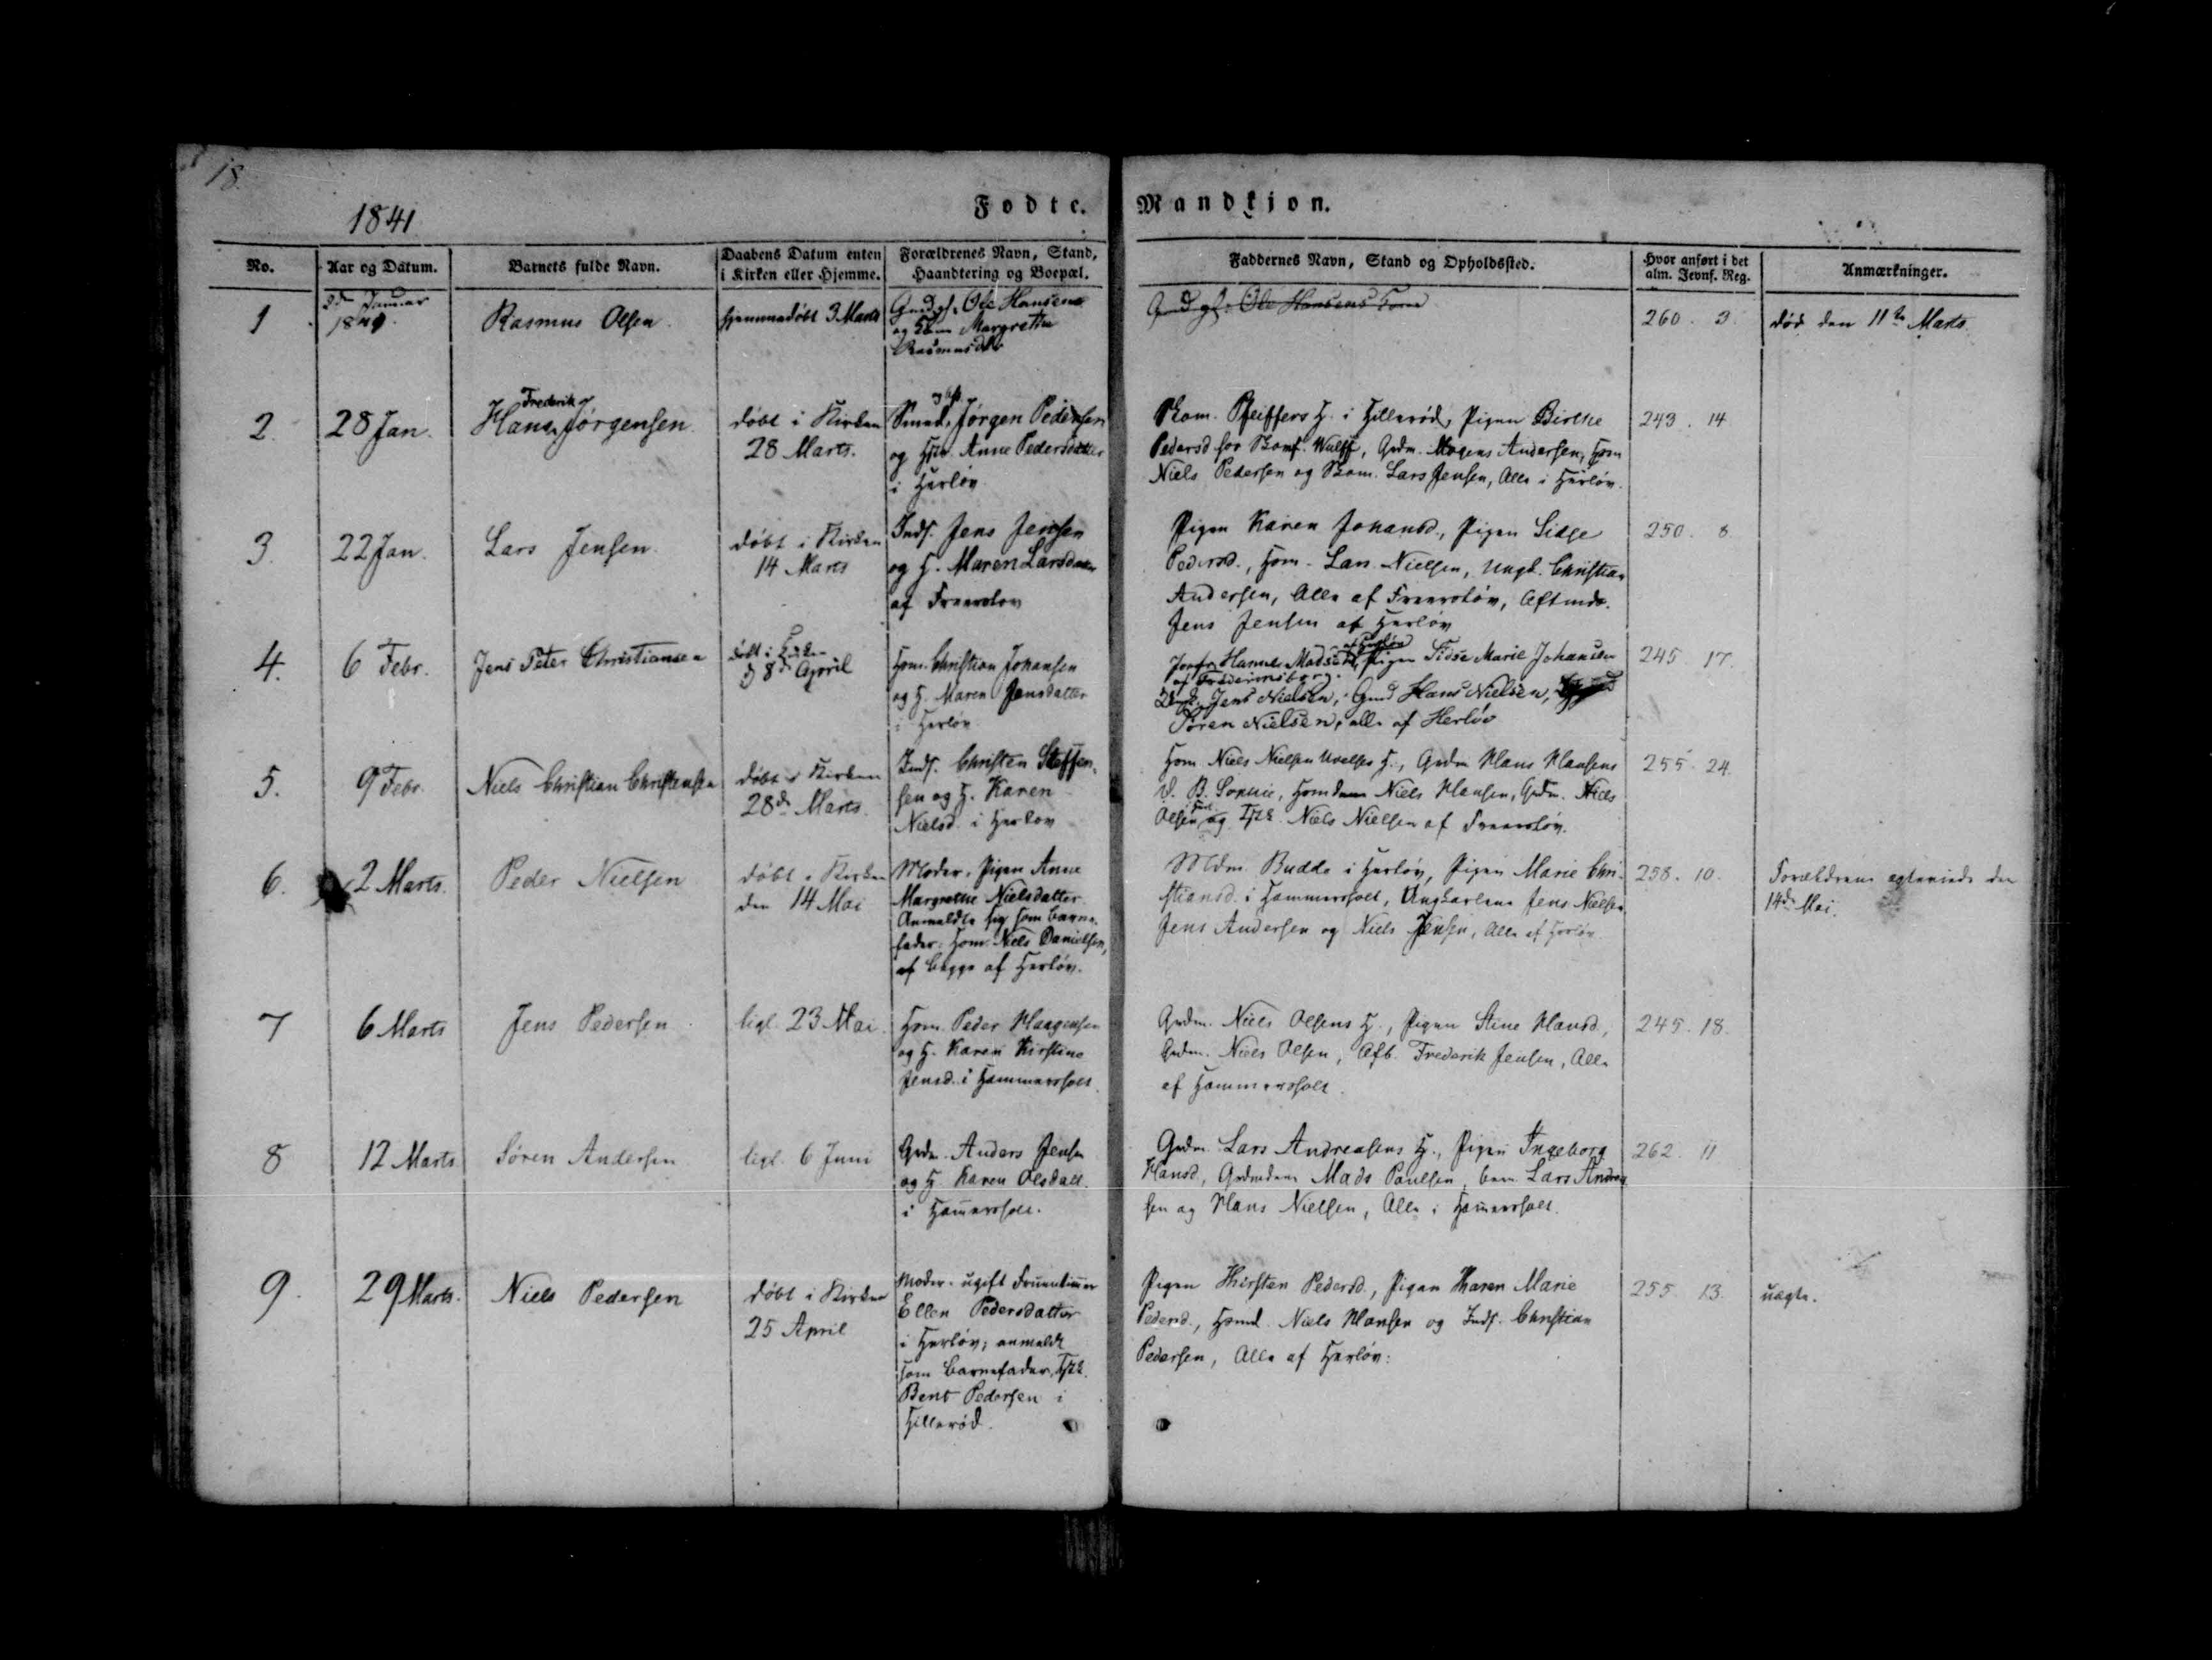 18.
1841
Fødte. Mandkjøn.
No. Aar og Datum. Barnets fulde Navn. Daabens Datum enten i Kirken eller Hjemme. Forældrenes Navn, Stand, Haandtering og Boepæl. Faddernes Navn, Stand og Opholdssted. Hvor anført i det alm. Jevnf. Reg. Anmærkninger.
1 Januar 1841. Rasmus Olsen hjemmedøbt 3 Marts
Ole Hansen
og Margrethe
Rasmusd.
Ole Hansens
260. 3. død den 11te Marts.
2. 28 Jan. Hans Frederik Jørgensen døbt i Kirken
28 Marts.
Smed, Jørgen Pedersen
og Anne Pedersdatter
i Herløv
Pfeiffers H. i Hillerød, Pigen Birthe
Pedersd. Wulff, Grdm. Mogens Andersen, Hsm
Niels Pedersen og Lars Jensen, Alle i Herløv.
243. 14
3. 22 Jan. Lars Jensen. døbt i Kirken
14 Marts
Inds. Jens Jensen
og H. Maren Larsdatter
af Freerslev
Pigen Karen Johansd., Pigen Sidse
Pedersd., Hsm. Lars Nielsen, Ungk. Christian
Andersen, Alle af Freersløv, Aftmd.
Jens Jensen af Herløv
250. 8.
4. 6 Febr. Jens Peter Christiansen døbt i Kirken
d 8de April
Hsm. Christian Johansen
og H. Maren Jensdatter
i Herløv
Jomfr Hanne Madsen, Pigen Sidse Marie Johansen
Jens Nielsen, Gmd Hans Nielsen,
Søren Nielsen, alle af Herløv
245. 17.
5. 9 Febr. Niels Christian Christensen døbt i Kirken
28de Marts.
Inds. Christen Steffen-
sen og H. Karen
Nielsd. i Herløv
Hsm. Niels Nielsen H., Grdm Hans Hansens
D. B. Sophie, Niels Hansen, Grdm. Niels
Olsen og Niels Nielsen af Freersløv.
255. 24.
6. 2 Marts. Peder Nielsen døbt i Kirken
den 14 Mai
Moder, Pigen Anne
Margrethe Nielsdatter
Anmeldte sig som Barne-
fader: Hsm. Niels Danielsen,
af begge af Herløv.
Mdm. Budde i Herløv, Pigen Marie Chri-
stiansd. i Hammersholt, Ungkarlene Jens Nielsen
Jens Andersen og Niels Jensen, Alle af Herløv
258. 10. Forældrene egteviede den
14de Mai.
7 6 Marts Jens Pedersen ligl. 23 Mai.
Hsm. Peder Haagensen
og H. Karen Kirstine
Jensd. i Hammersholt.
Grdm. Niels Olsens H., Pigen Stine Hansd.,
Grdm. Niels Olsen, Aftb. Frederik Jensen, Alle
af Hammersholt.
245. 18.
8 12 Marts Søren Andersen ligl. 6 Juni
Grdm. Anders Jensen
og H. Karen Olsdatt.
i Ham̄ersholt.
Grdm. Lars Andreasens H., Pigen Ingeborg
Hansd., Grdmdene Mads Poulsen, Lars Andrea-
sen og Hans Nielsen, Alle i Ham̄ersholt.
262. 11
9. 29 Marts. Niels Pedersen døbt i Kirken
25 April
Moder: ugift Fruentim̄er
Ellen Pedersdatter
i Herløv; anmeldt
som Barnefader, Tjstk.
Bent Pedersen i
Hillerød.
Pigen Kirsten Pedersd., Pigen Karen Marie
Pedersd., Hsmd. Niels Hansen og Inds. Christian
Pedersen, Alle af Herløv.
255. 13. uægte.